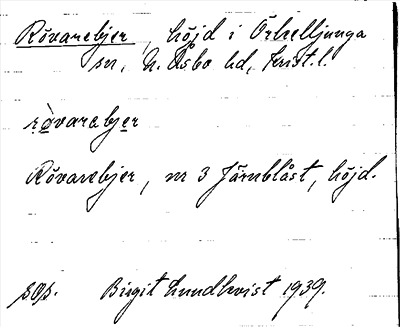 Rövarebjer, höjd i Örkelljunga
sn, N. Åsbo hd, Krist. l.
rövarebjer
Rövarebjer, nr 3 Järnblåst, höjd.
Birgit Lundkvist 1939.